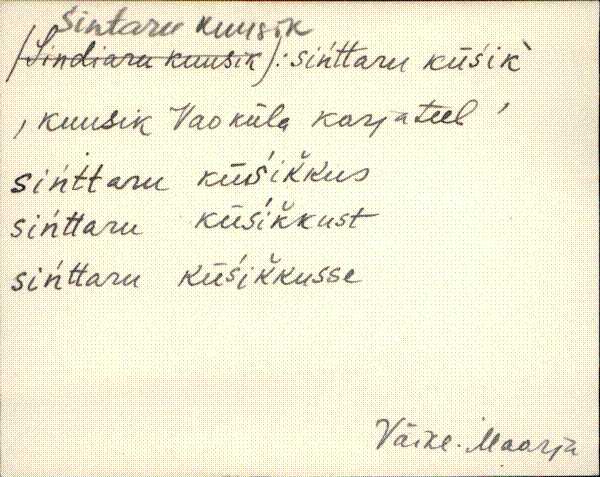 Sintaru kuusik
(Sindiaru kuusik): sińttaru kūśik̀
, kuusik Vaoküla karjateel '
sińttaru kūśik̆kus
sińttaru kūśik̆kust
sińttaru kūśik̆kusse
Väike-Maarja